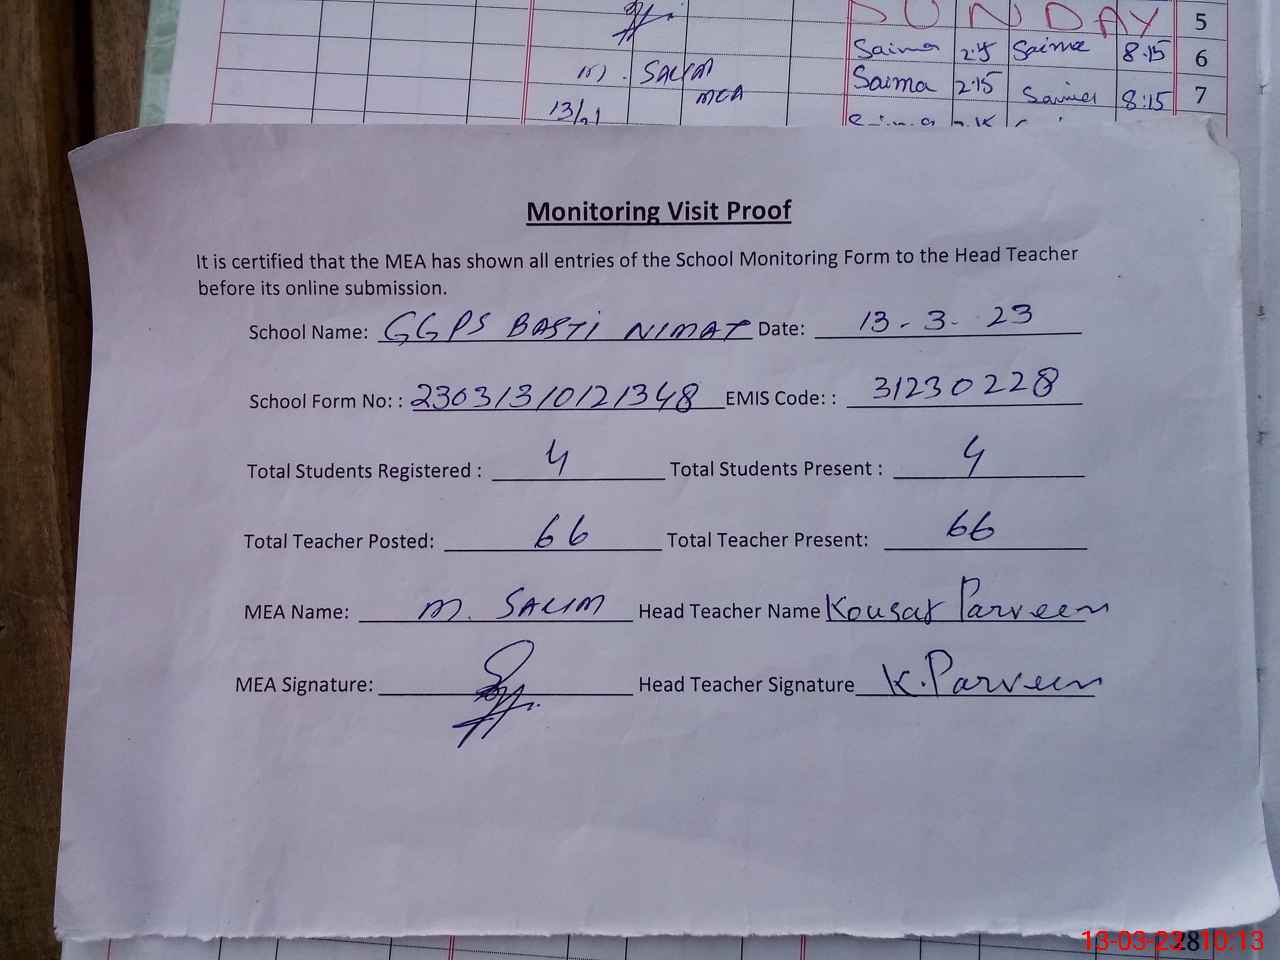 SUNDAY 5
Saima 2:15 Saima 8:15 6
M. SALIM Saima 2:15 Saima 8:15 7
MEA
13/
Monitoring Visit Proof
It is certified that the MEA has shown all entries of the School Monitoring Form to the Head Teacher
before its online submission.
School Name: GGPS BASTI NIMAT Date: 13-3-23
School Form No: : 23031310121348 EMIS Code: : 31230228
Total Students Registered : 4 Total Students Present : 4
Total Teacher Posted: 66 Total Teacher Present: 66
MEA Name: M. SALIM Head Teacher Name Kousar Parveen
MEA Signature: Head Teacher Signature K.Parveen
28
13-03-23 10:13